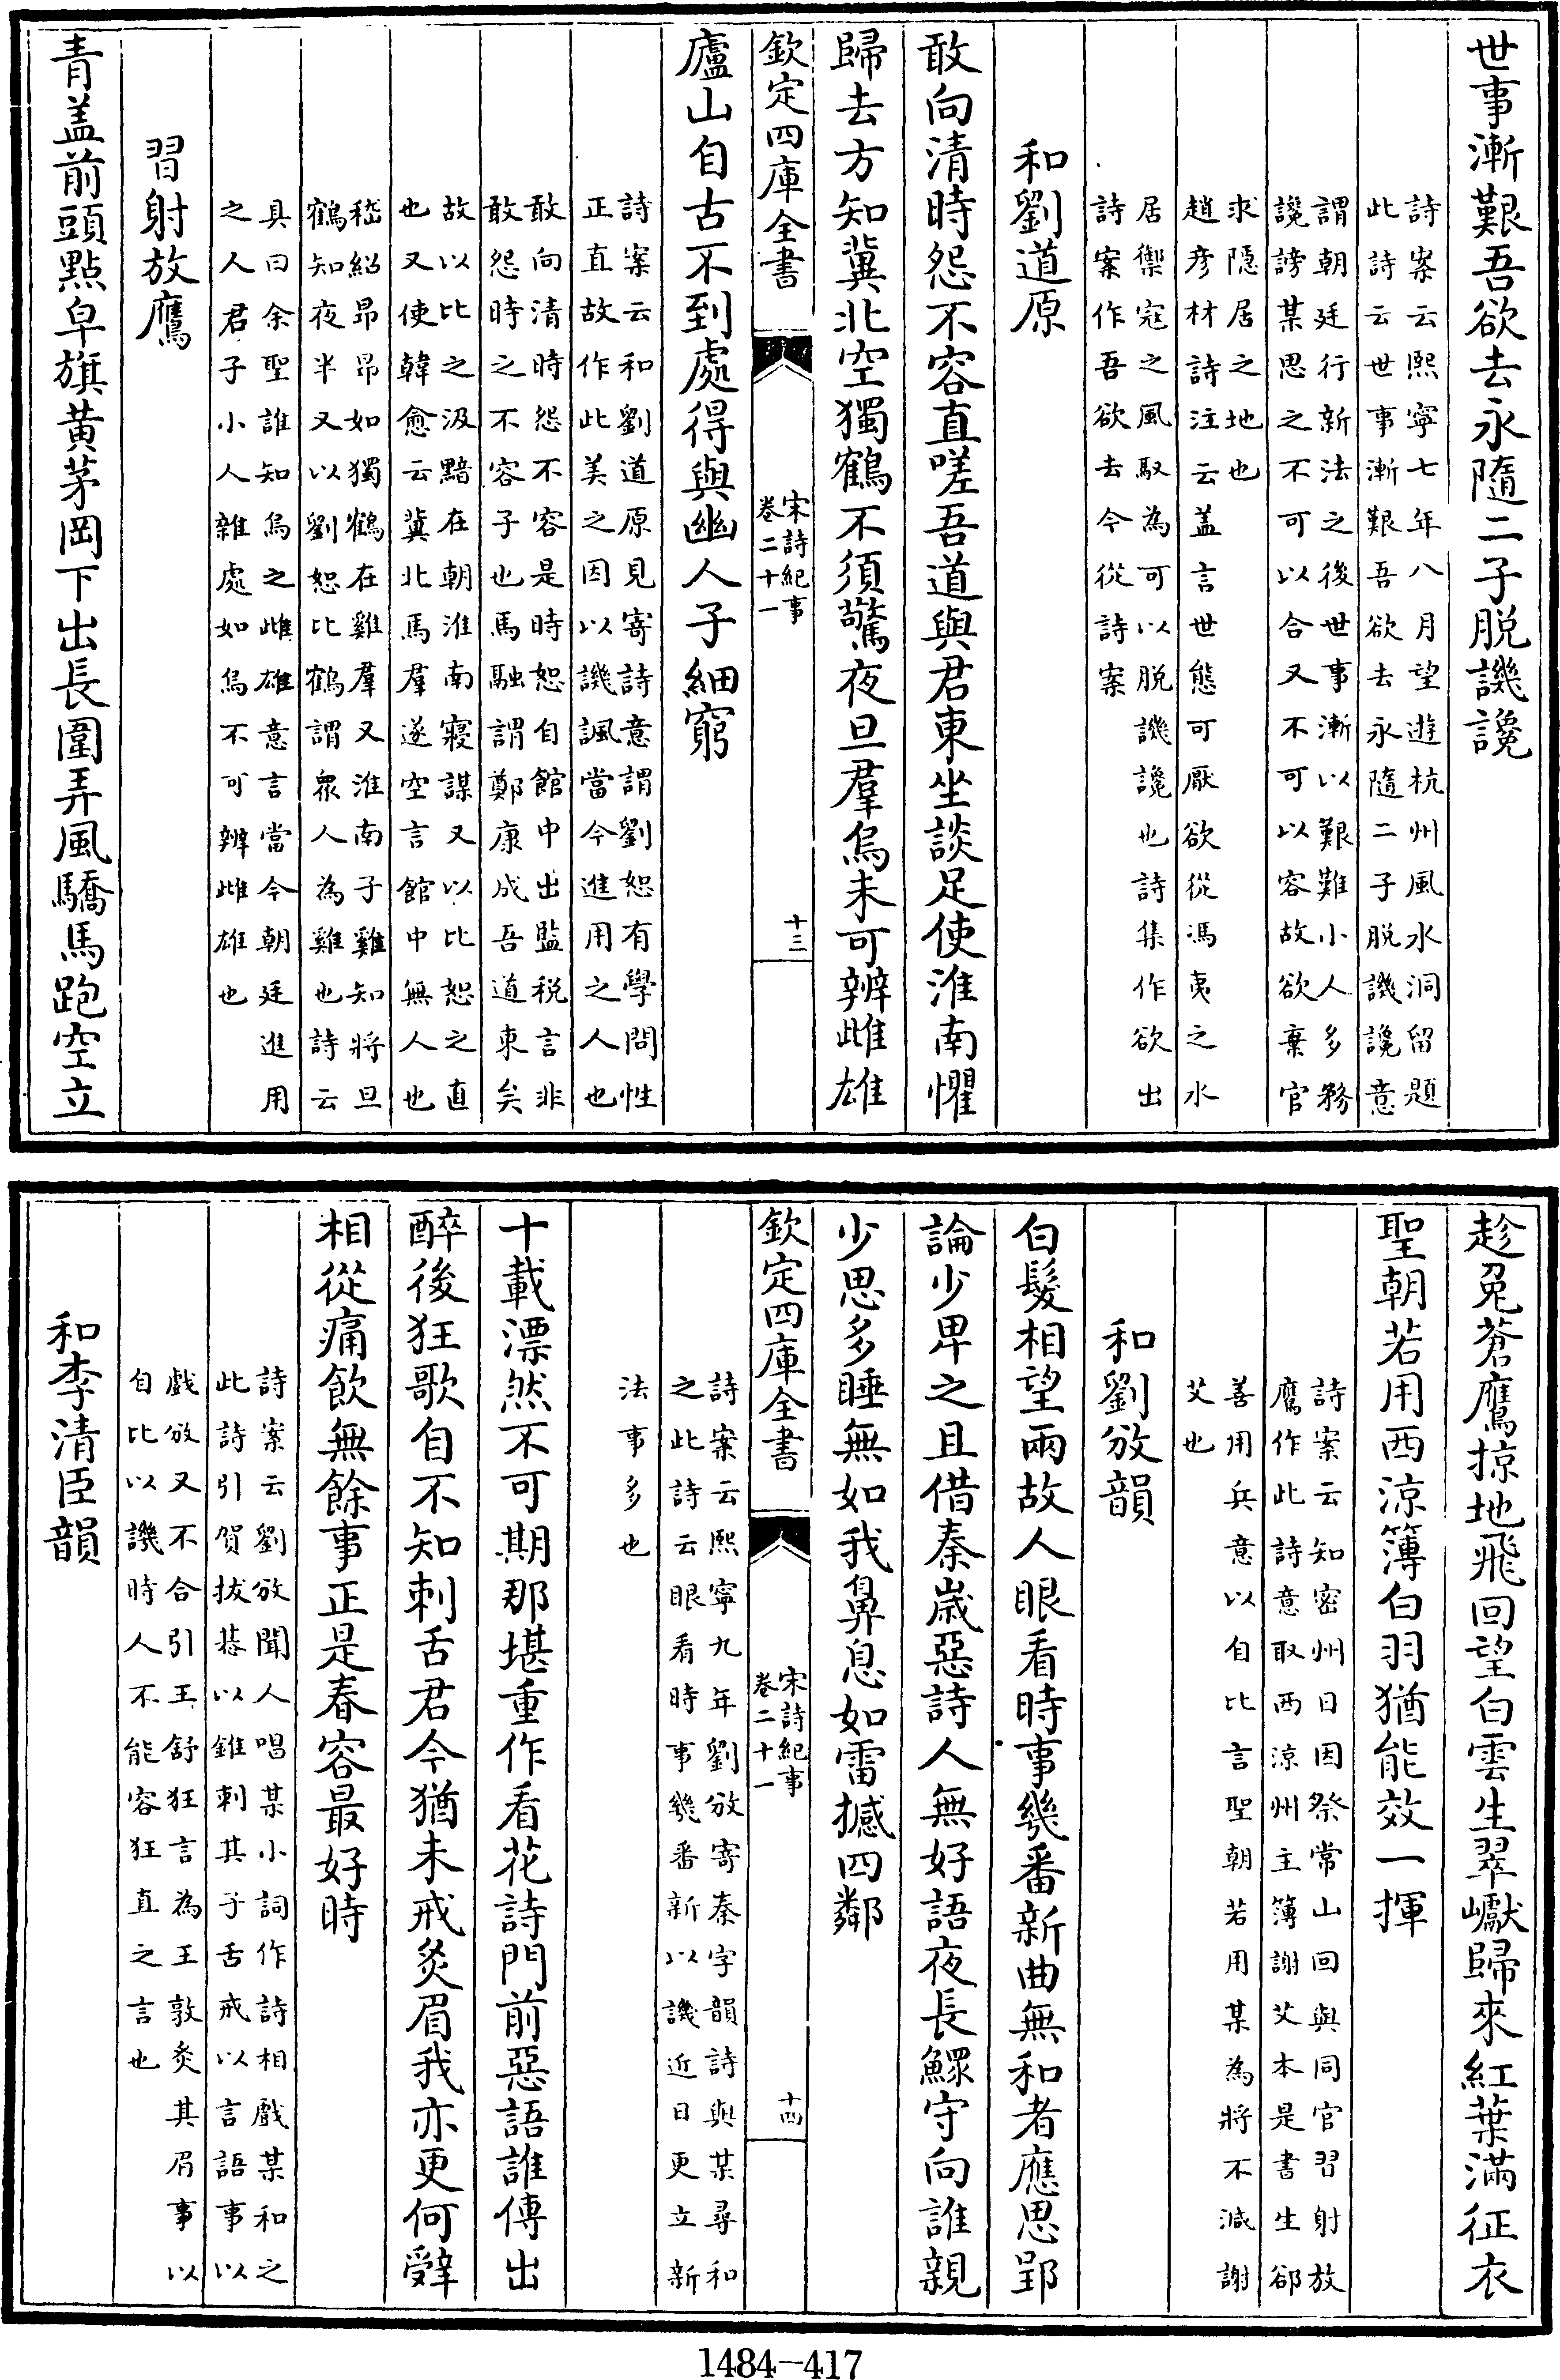 世事漸艱吾欲去永隨二子脫譏讒
詩案云熙寧七年八月望遊杭州風水洞留題
此詩云世事漸艱吾欲去永隨二子脫譏讒意
謂朝廷行新法之後世事漸以艱難小人多務
讒謗某思之不可以合又不可以容故欲棄官
求隱居之地也
趙彥材詩注云蓋言世態可厭欲從馮夷之水
居禦寇之風馭為可以脫譏讒也詩集作欲出
詩案作吾欲去今從詩案
和劉道原
敢向清時怨不容直嗟吾道與君東坐談足使淮南懼
歸去方知冀北空獨鶴不須驚夜旦羣烏未可辨雌雄
欽定四庫全書
宋詩紀事
卷二十一
十三
廬山自古不到處得與幽人子細窮
詩案云和劉道原見寄詩意謂劉恕有學問性
正直故作此美之因以譏諷當今進用之人也
敢向清時怨不容是時恕自館中出監税言非
敢怨時之不容子也馬融謂鄭康成吾道東矣
故以比之汲黯在朝淮南寢謀又以比恕之直
也又使韓愈云冀北馬羣遂空言館中無人也
嵇紹昂昂如獨鶴在雞羣又淮南子雞知將旦
鶴知夜半又以劉恕比鶴謂衆人為雞也詩云
具曰余聖誰知烏之雌雄意言當今朝廷進用
之人君子小人雜處如烏不可辨雌雄也
習射放鷹
青蓋前頭點皁旗黄茅岡下出長圍弄風驕馬跑空立
趁兔蒼鷹掠地飛回望白雲生翠巘歸來紅葉滿征衣
聖朝若用西涼簿白羽猶能效一揮
詩案云知密州日因祭常山回與同官習射放
鷹作此詩意取西涼州主簿謝艾本是書生郤
善用兵意以自比言聖朝若用某為將不減謝
艾也
和劉攽韻
白髮相望兩故人眼看時事幾番新曲無和者應思郢
論少卑之且借秦歲惡詩人無好語夜長鰥守向誰親
少思多睡無如我鼻息如雷撼四鄰
欽定四庫全書
宋詩紀事
卷二十一
十四
詩案云熙寧九年劉攽寄秦字韻詩與某尋和
之此詩云眼看時事幾番新以譏近日更立新
法事多也
十載漂然不可期那堪重作看花詩門前惡語誰傳出
醉後狂歌自不知刺舌君今猶未戒炙眉我亦更何辭
相從痛飲無餘事正是春容最好時
詩案云劉攽聞人唱某小詞作詩相戲某和之
此詩引賀拔惎以錐刺其子舌戒以言語事以
戲攽又不合引王舒狂言為王敦炙其眉事以
自比以譏時人不能容狂直之言也
和李清臣韻
1484-417